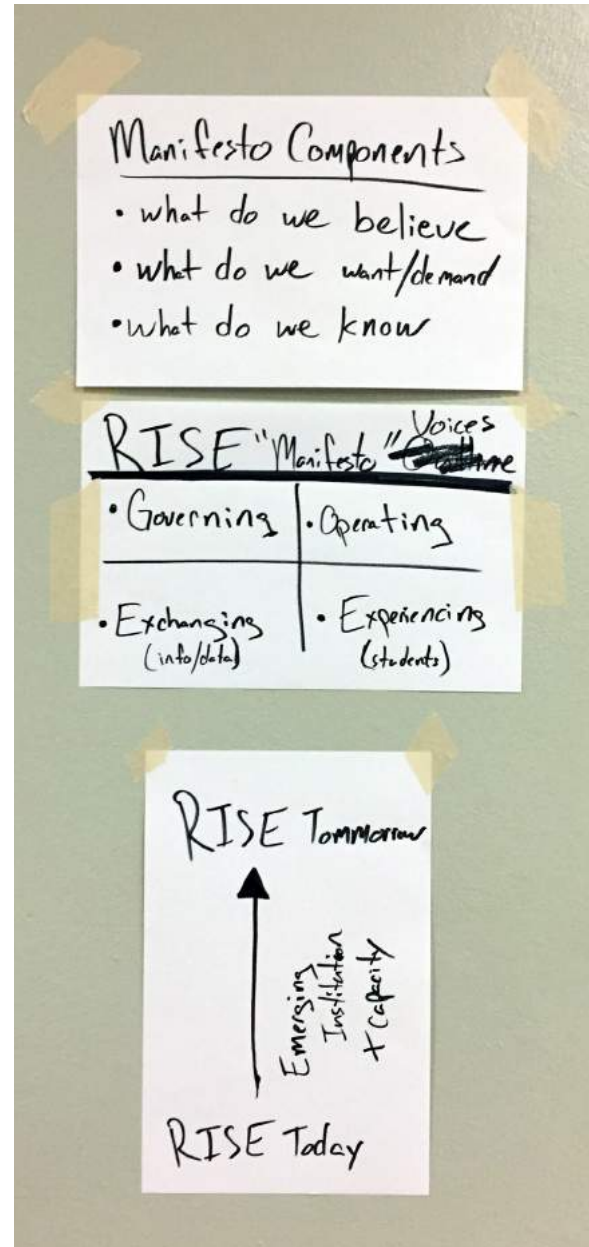 Manifesto Components
• what do we believe
• what do we want/demand
• what do we know
RISE "Manifesto" Voices
• Governing
• Operating
• Exchanging
(info/data)
• Experiencing
(students)
RISE Tommorrow
Emerging
Institution
+ Capacity
RISE Today